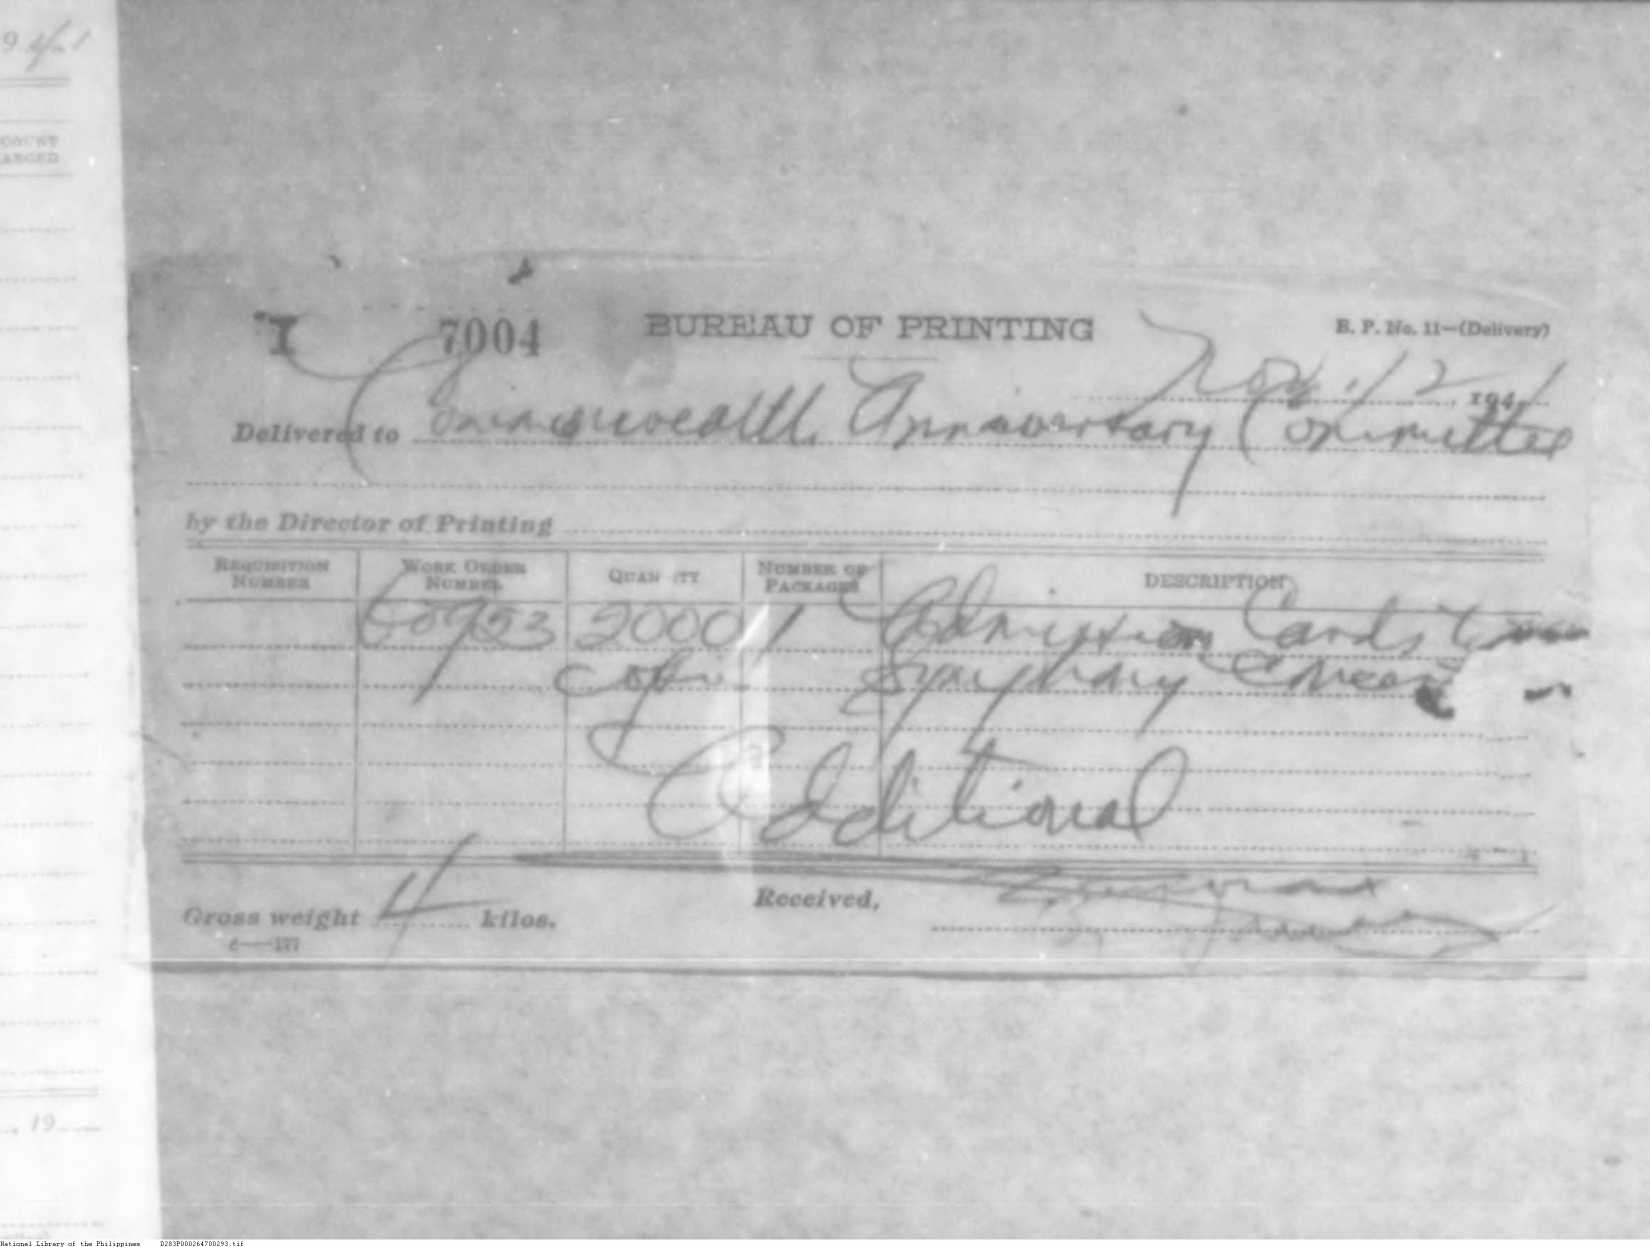 COUNT
ARGED
I 7004 BUREAU OF PRINTING B. P. No. 11—(Delivery)
Nov. 12, 1941
Delivered to Commonwealth Anniversary Committee
by the Director of Printing
REQUISITION NUMBER WORK ORDER NUMBER QUANTITY NUMBER OF PACKAGES DESCRIPTION
60923 2000 1 Admission Cards to
copies Symphony Concert
Additional
Gross weight 4 kilos. Received,
19
National Library of the Philippines D283P000264700293.tif